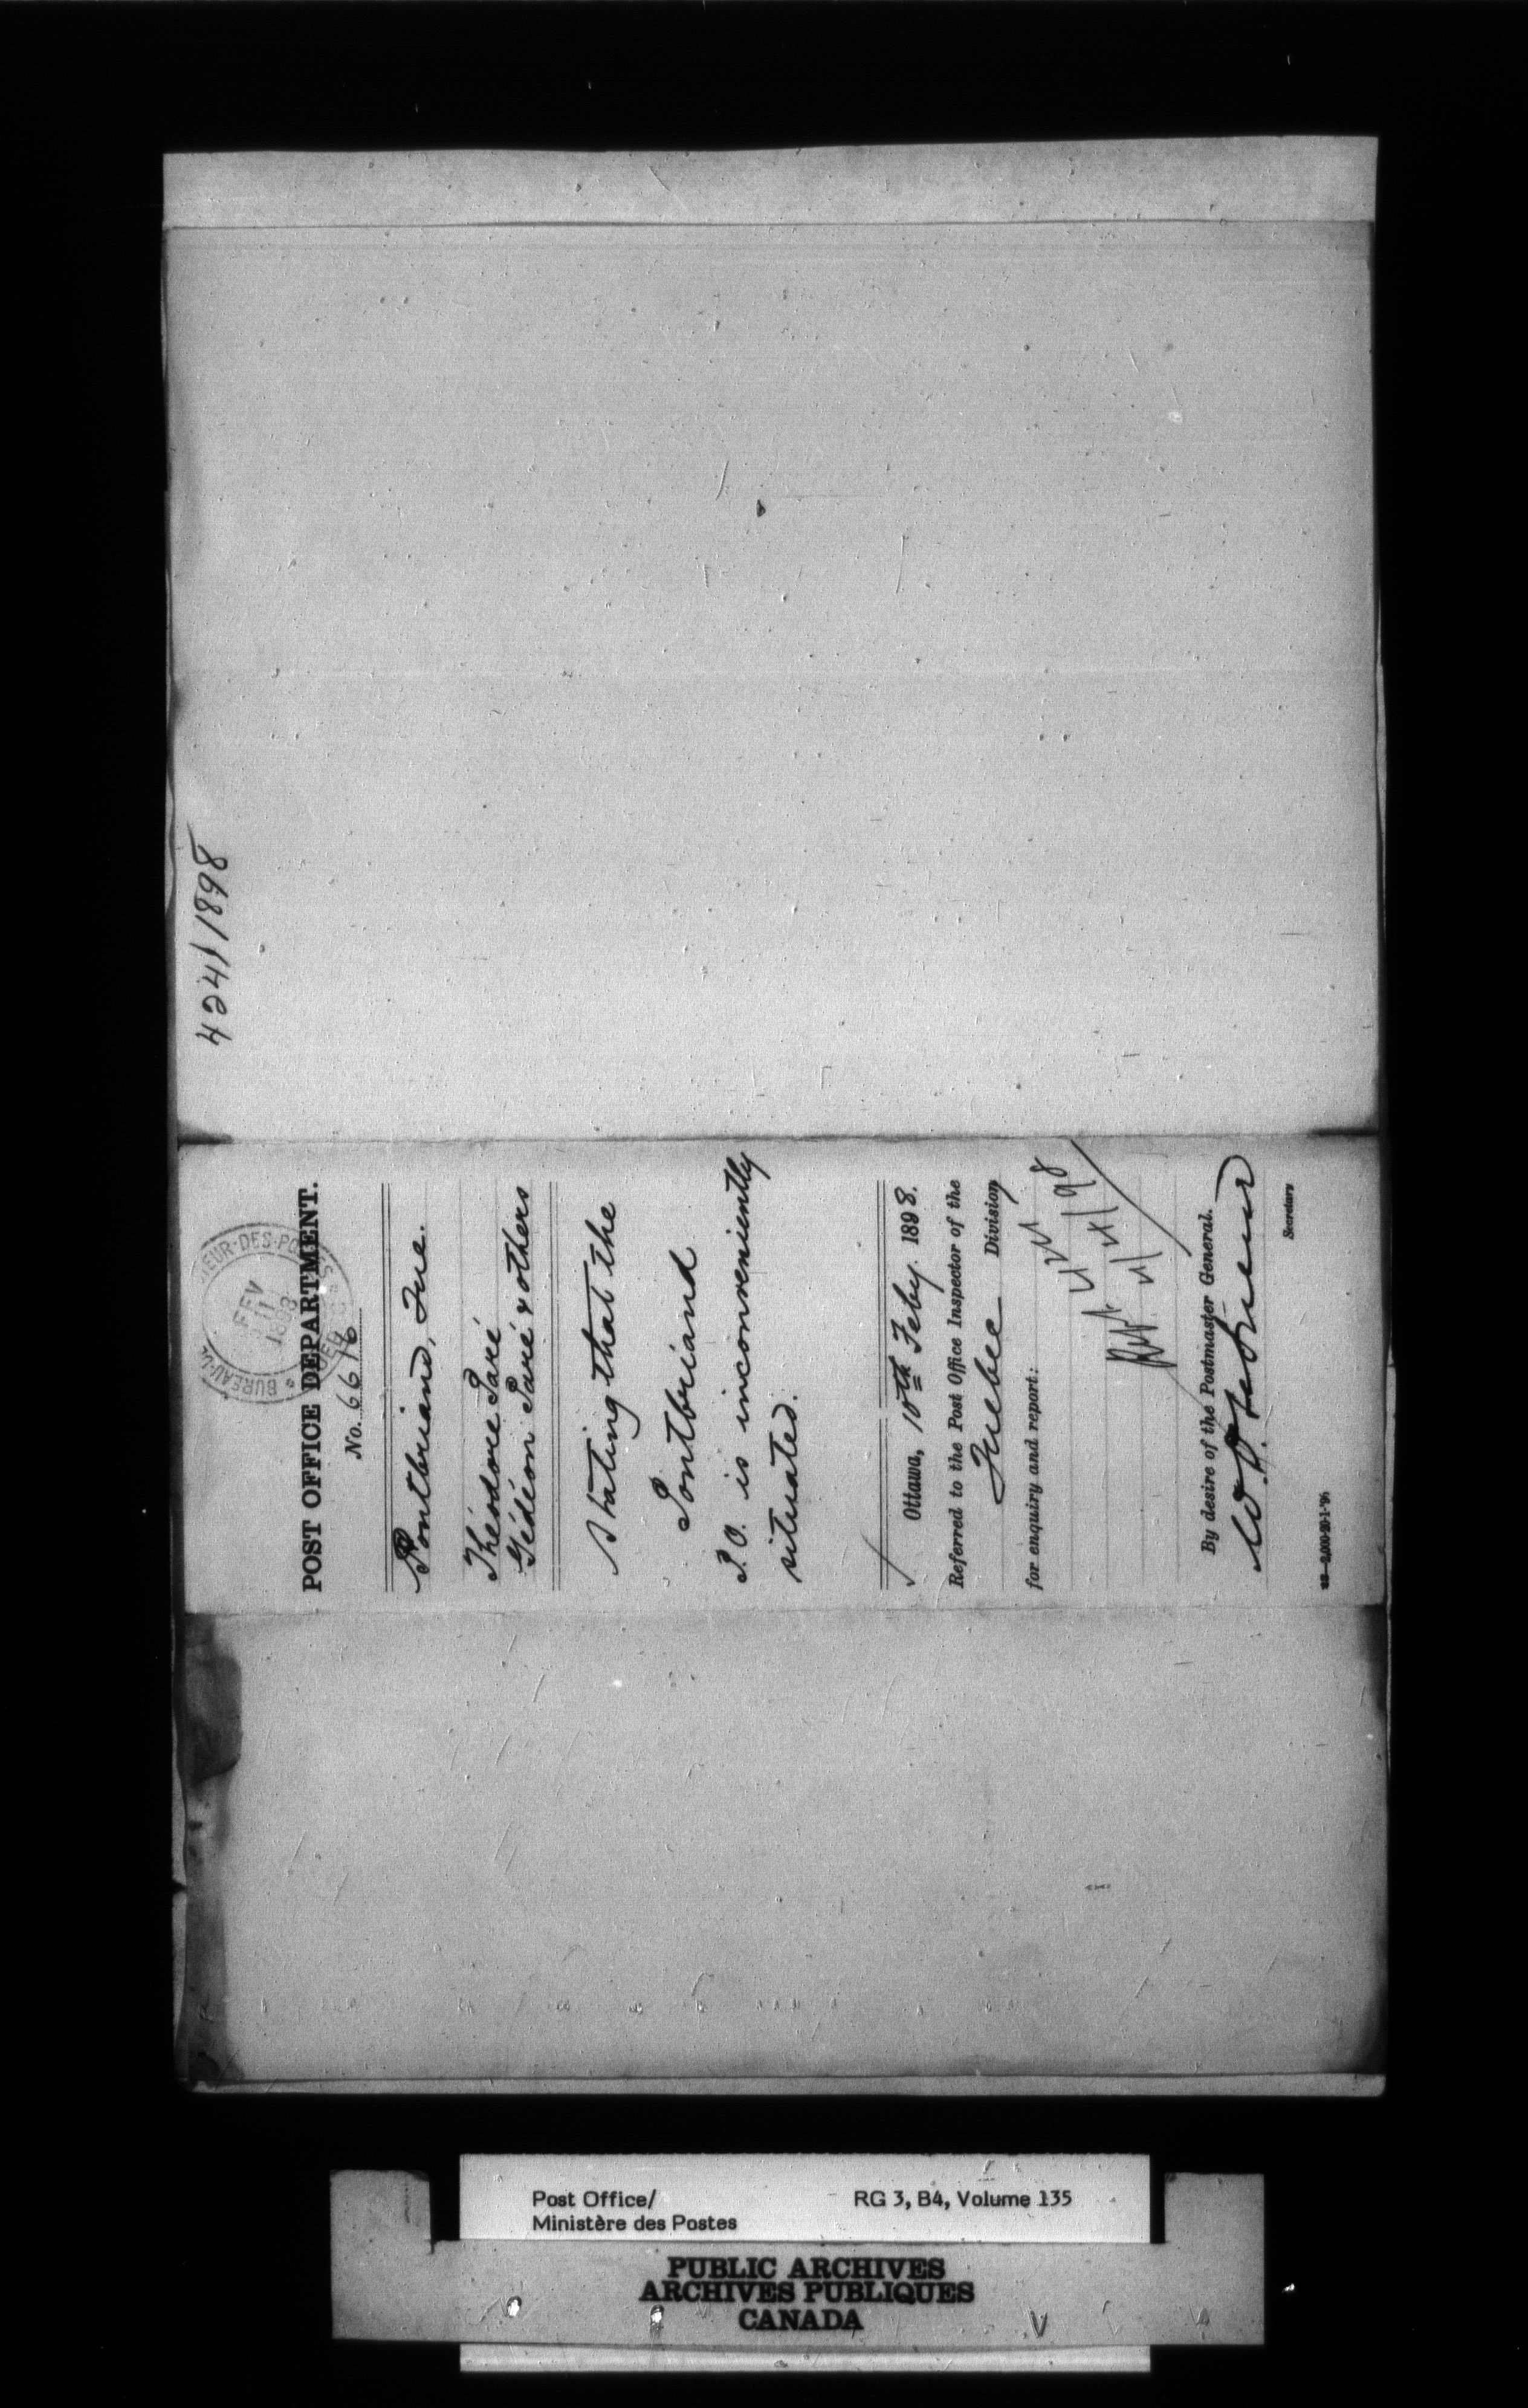 424/1898
BUREAU-DE
EUR-DES-POSTES
FEV
11
1898
POST OFFICE DEPARTMENT.
No. 6616
Pontbriand, Que.
Théodore Paré
Gédéon Paré & others
Stating that the
Pontbriand
P.O. is inconveniently
situated.
Ottawa, 10th Feby. 1898.
Referred to the Post Office Inspector of the
Quebec Division
for enquiry and report:
By desire of the Postmaster General.
Secretary
Post Office/
Ministère des Postes
RG 3, B4, Volume 135
PUBLIC ARCHIVES
ARCHIVES PUBLIQUES
CANADA